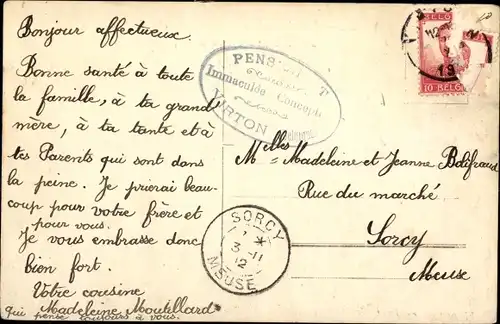 Bonjour affectueux.
Bonne santé à toute
la famille, à ta grand'
mère, à ta tante et à
tes Parents qui sont dans
la peine. Je prierai beau-
coup pour votre frère et
pour vous.
Je vous embrasse donc
bien fort.
Votre cousine
Madeleine Moutillard
qui pense toujours à vous.
PENS T
Immaculée Concepti
VIRTON
SORCY
3-11
12
MEUSE
BELG
10 BELG
Melles Madeleine et Jeanne Bolifraud
Rue du marché
Sorcy
Meuse